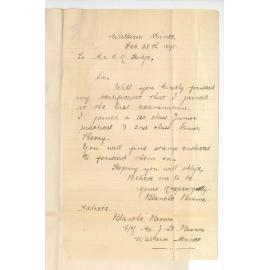 Walkerow Manor
Feb 28th 1895
To Mr. O. R. Dodge,
Sir,
Will you kindly forward
my certificates that I gained
at the last examination.
I gained a 1st class Junior
practical & 2nd class Junior
Theory.
You will find stamp enclosed
to forward them on.
Hoping you will oblige,
Believe me to be
Yours Respectfully
Blanche Brown.
Address.
Blanche Brown
C/o Mr J. D. Brown
Walkerow Manor